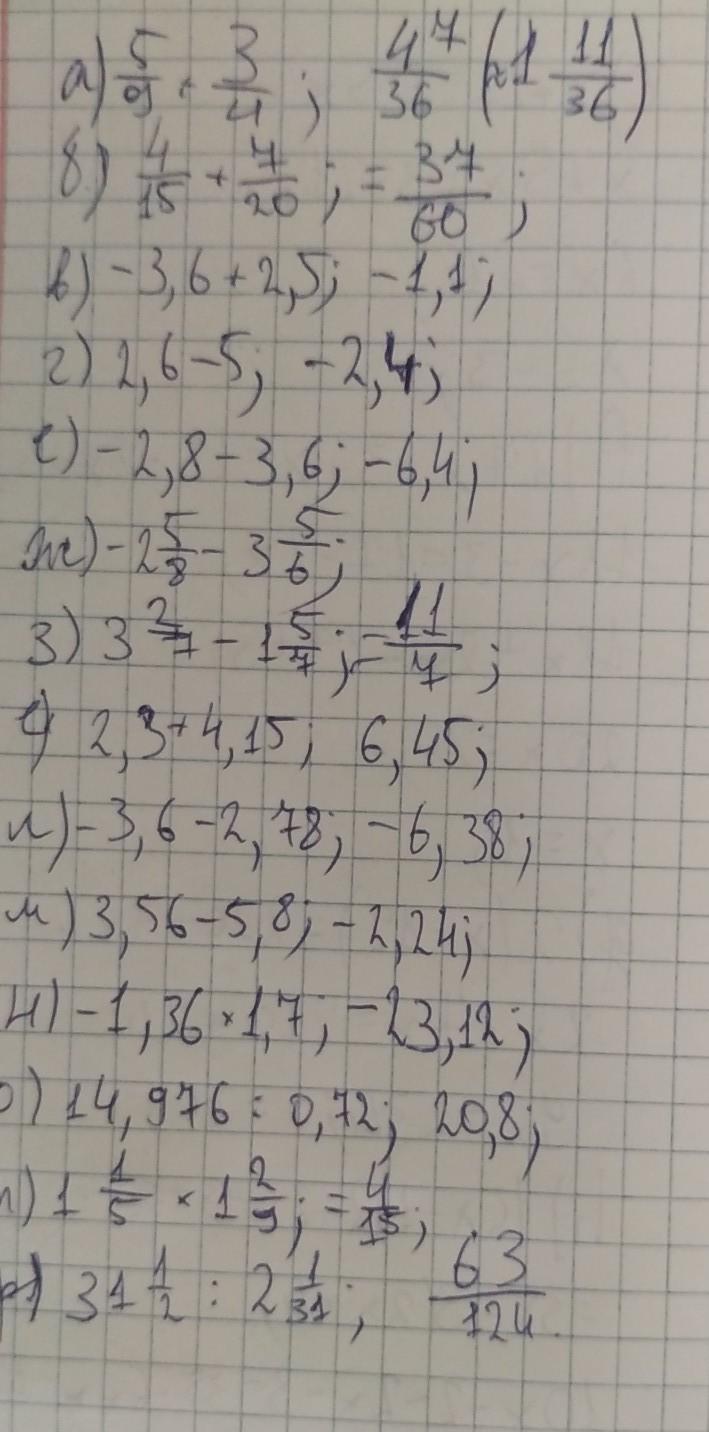 а) 5/9 + 3/4; 47/36 (=1 11/36)
б) 4/15 + 7/20; = 37/60;
в) -3,6 + 2,5; -1,1;
г) 2,6 - 5; -2,4;
е) -2,8 - 3,6; -6,4;
ж) -2 5/8 - 3 5/6;
з) 3 2/7 - 1 5/7; = 11/7;
2,3 + 4,15; 6,45;
л) -3,6 - 2,78; -6,38;
м) 3,56 - 5,8; -2,24;
н) -1,36 × 1,7; -23,12;
о) 14,976 : 0,72; 20,8;
п) 1 1/5 × 1 2/9; = 4/15;
р) 31 1/2 : 2 1/31; 63/124.